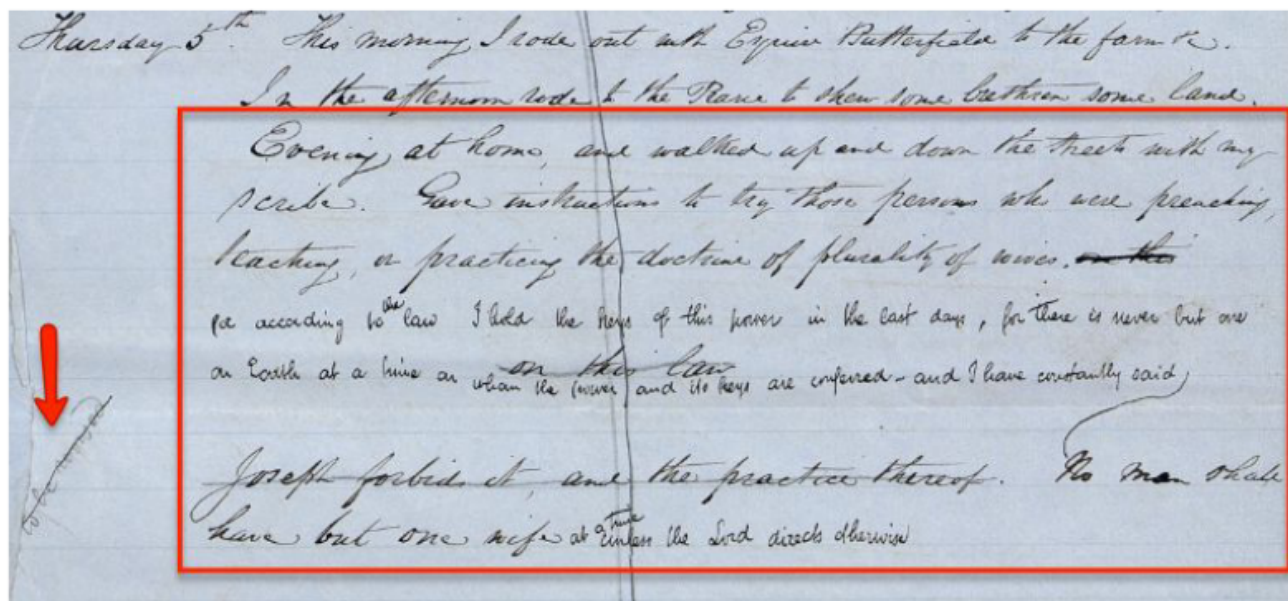 Thursday 5th. This morning I rode out with Esquire Butterfield to the farm &c.
In the afternoon rode to the Prarie to shew some brethren some land.
Evening at home, and walked up and down the streets with my
scribe. Gave instructions to try those persons who were preaching,
teaching, or practicing the doctrine of plurality of wives. on this
for according to the law I hold the keys of this power in the last days, for there is never but one
on Earth at a time on whom the power and its keys are conferred - and I have constantly said
on this law
Joseph forbids it, and the practice thereof. No man shall
have but one wife at a time unless the Lord directs otherwise
to be revised